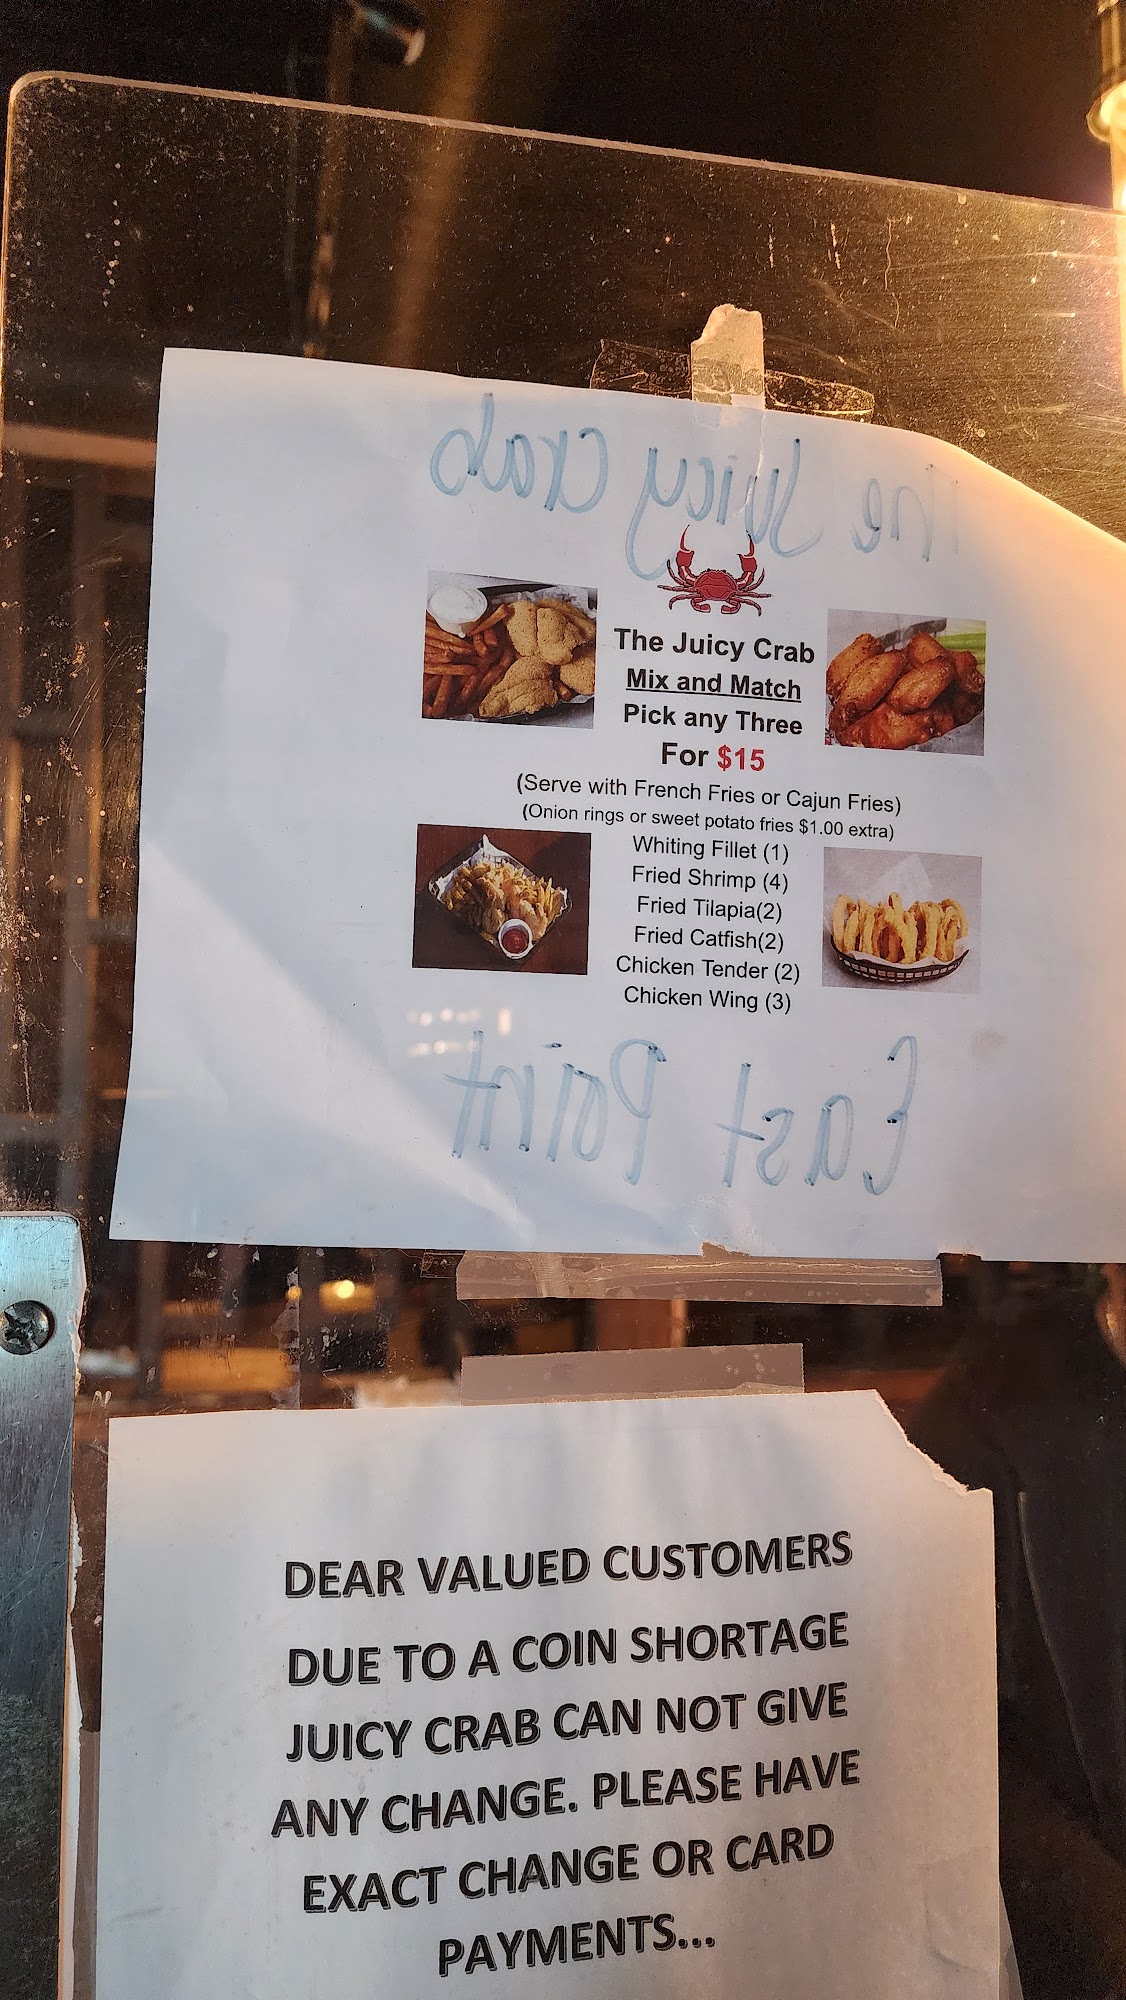 The Juicy Crab
The Juicy Crab
Mix and Match
Pick any Three
For $15
(Serve with French Fries or Cajun Fries)
(Onion rings or sweet potato fries $1.00 extra)
Whiting Fillet (1)
Fried Shrimp (4)
Fried Tilapia(2)
Fried Catfish(2)
Chicken Tender (2)
Chicken Wing (3)
East Point
DEAR VALUED CUSTOMERS
DUE TO A COIN SHORTAGE
JUICY CRAB CAN NOT GIVE
ANY CHANGE. PLEASE HAVE
EXACT CHANGE OR CARD
PAYMENTS...